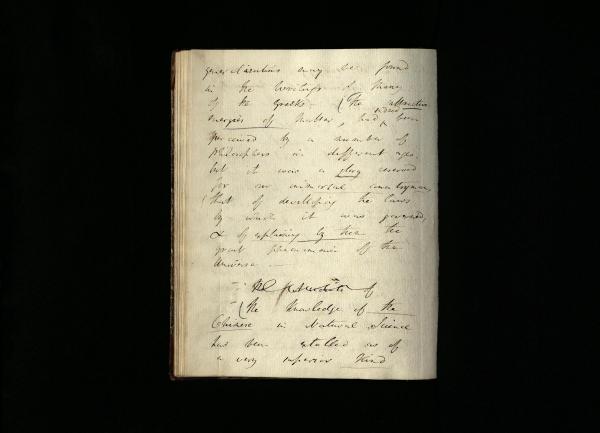 generalizations may be found
in the writings of many
of the Greeks (The attractive
indeed
energies of matter, had been
perceived by a number of
Philosophers in different ages
but it was a glory reserved
for our immortal countryman
that of developing the laws
by which it was governed,
& of explaining by them the
great phenomena of the
Universe. —
of
(The knowledge of the
Chinese in Natural Science
has been extolled as of
a very superior kind